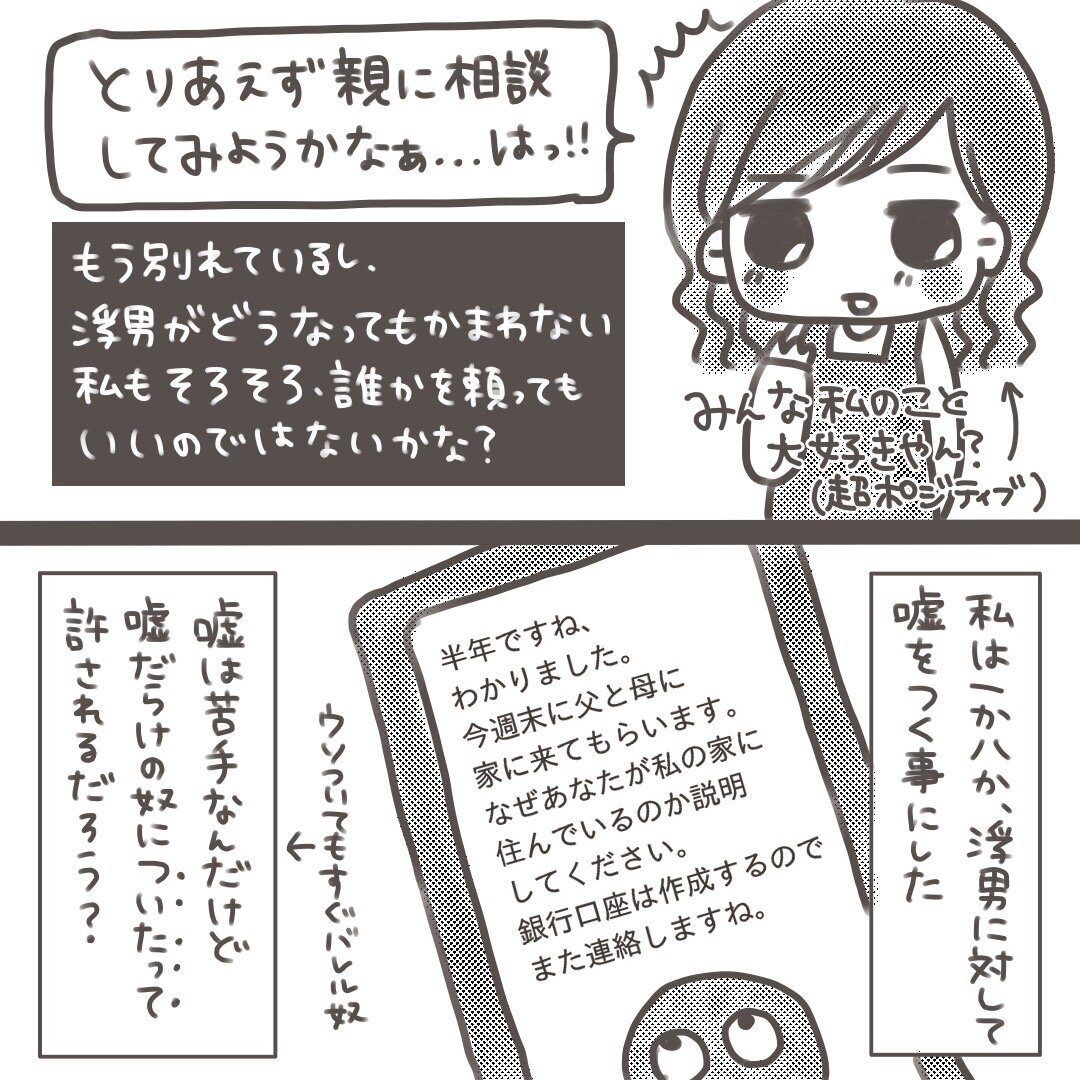 とりあえず親に相談
してみようかなぁ...はっ!!
もう別れているし、
浮男がどうなってもかまわない
私もそろそろ、誰かを頼っても
いいのではないかな?
みんな私のこと
大好きやん?
(超ポジティブ)
私は一か八か、浮男に対して
嘘をつく事にした
半年ですね、
わかりました。
今週末に父と母に
家に来てもらいます。
なぜあなたが私の家に
住んでいるのか説明
してください。
銀行口座は作成するので
また連絡しますね。
ウソついてもすぐバレル奴
嘘は苦手なんだけど
嘘だらけの奴についたって
許されるだろう?